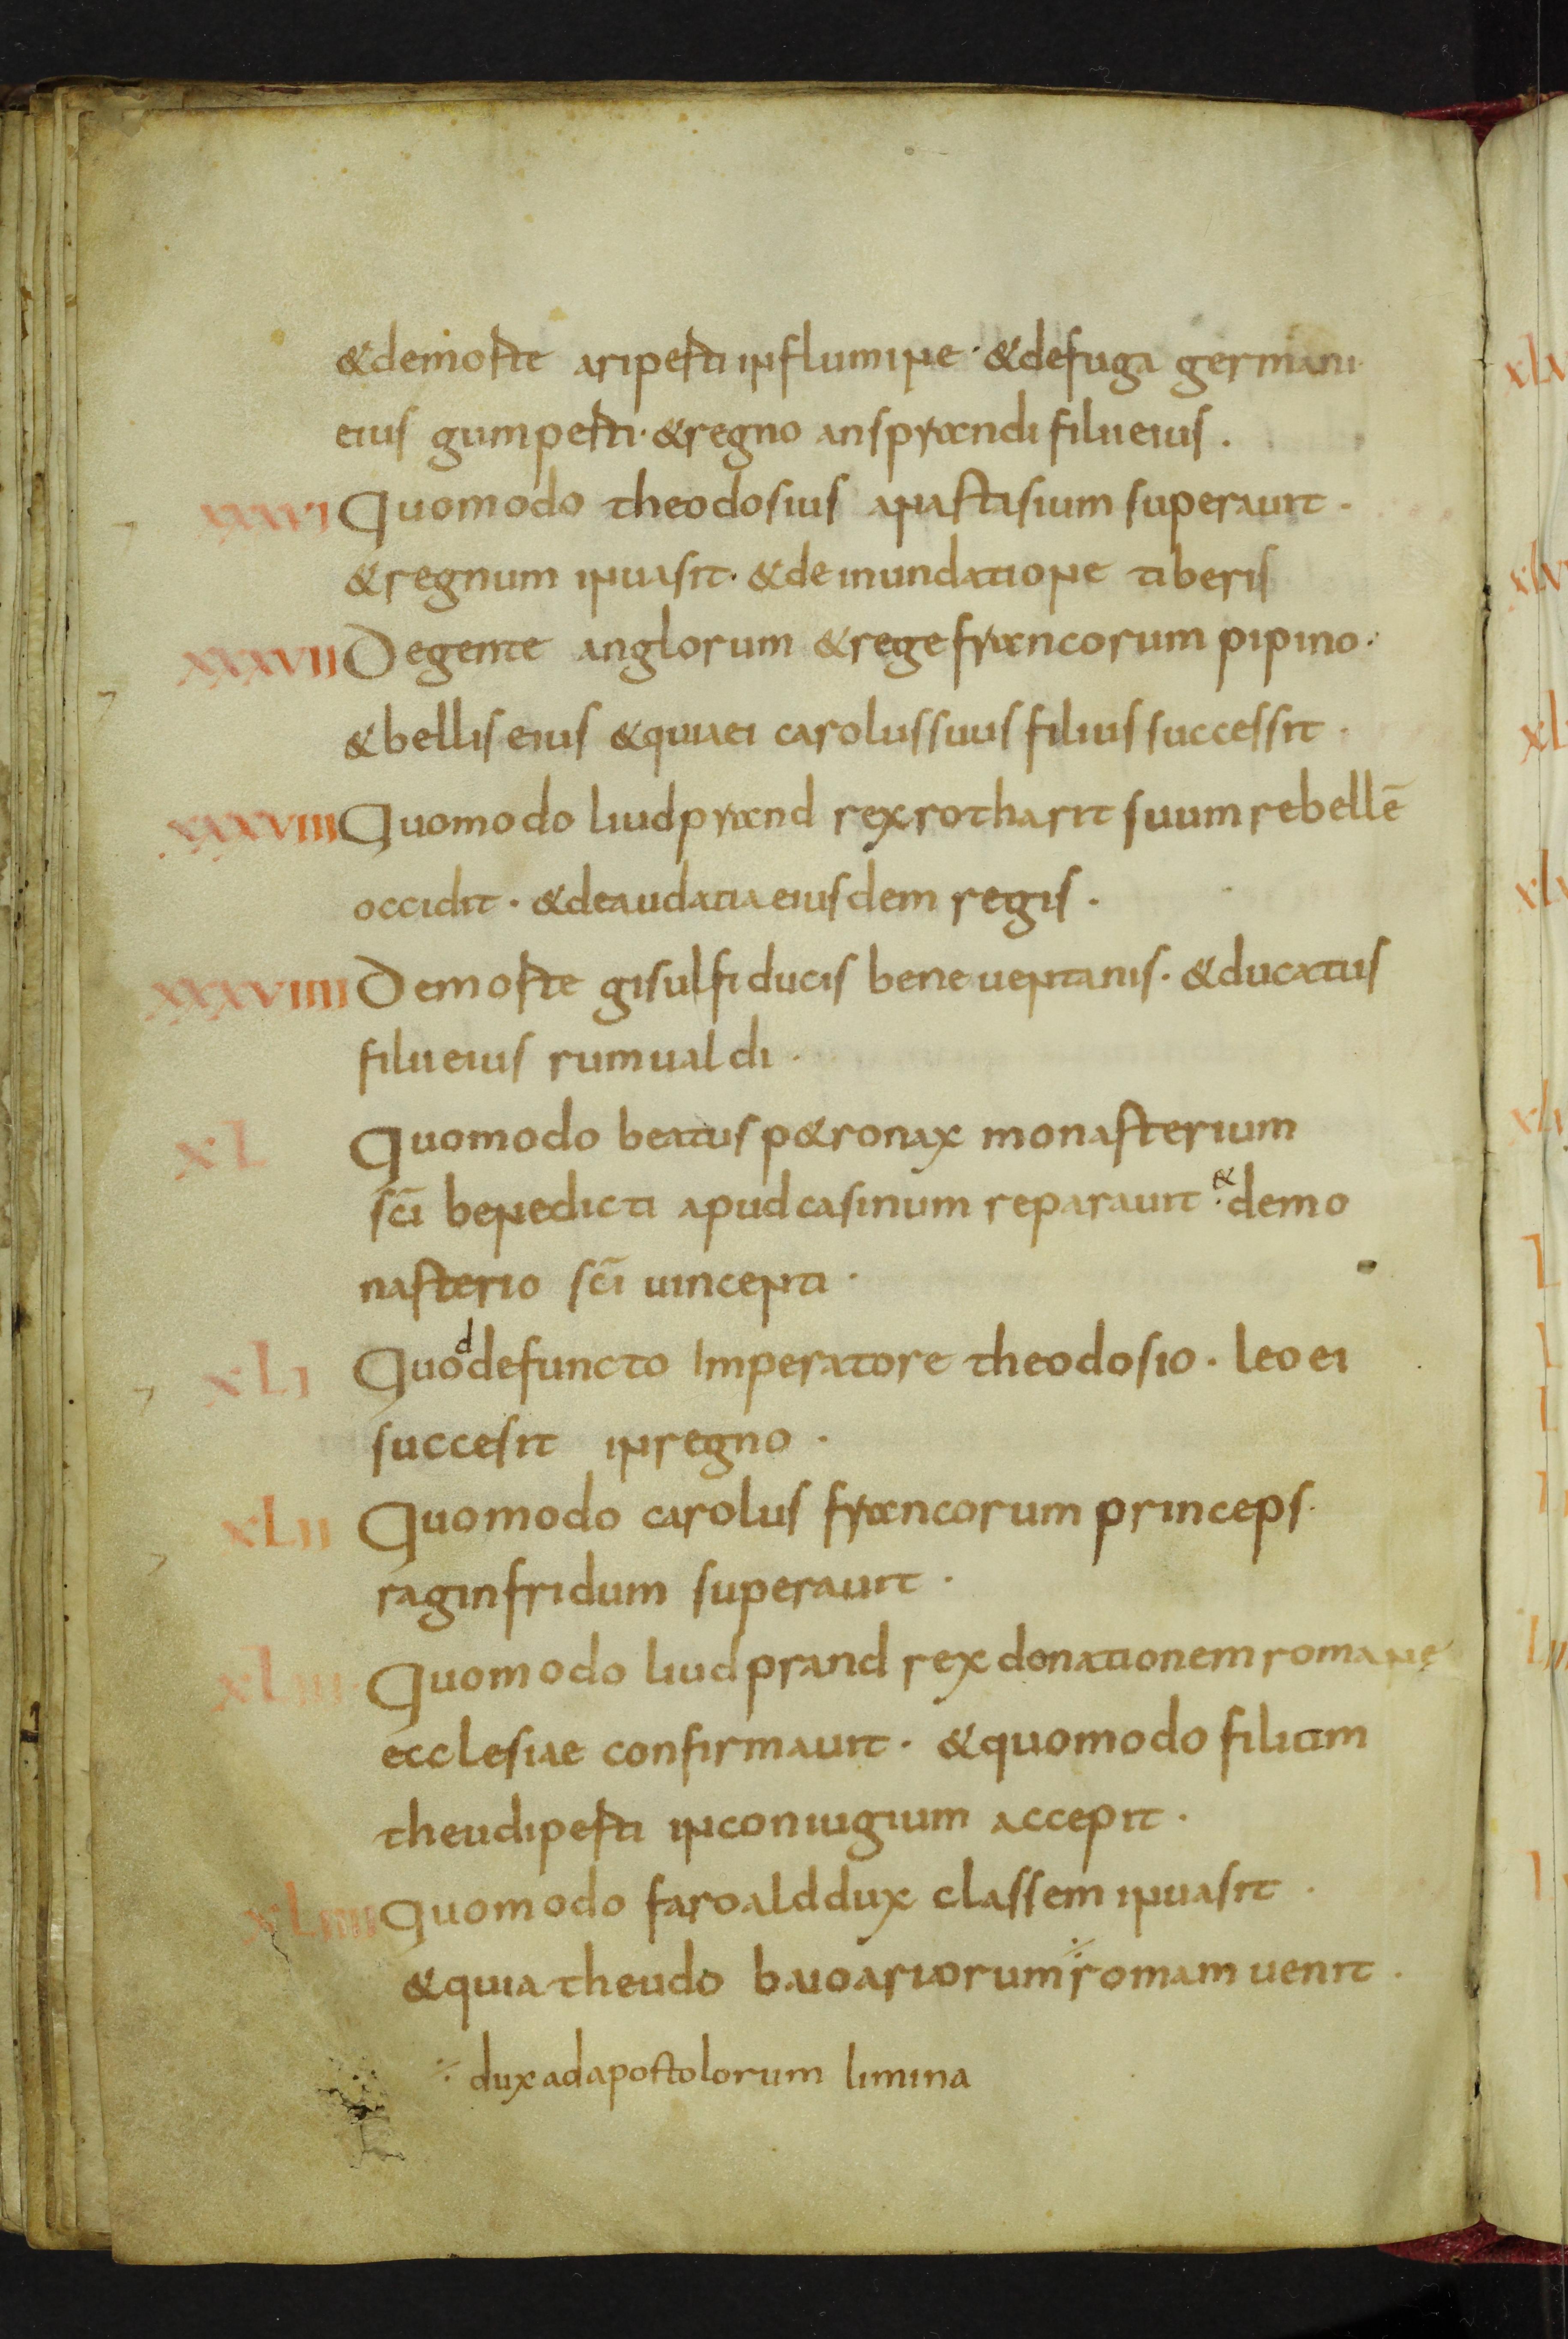 & demorte aripertiinflumine · & defuga germani
eius gumperti · & regno ansprandi filii eius .
XXXVI Quomodo theodosius anastasium superauit .
& regnum inuasit · & de inundatione tiberis
XXXVII De gente anglorum & rege francorum pipino .
& bellis eius & quia ei carolus suus filius successit .
XXXVIII Quomodo liudprand rex rotharit suum rebellē
occidit . & de audatia eiusdem regis .
XXXVIIII De morte gisulfi ducis beneuentanis . & ducatus
filii eius rumualdi .
XL Quomodo beatus p&ronax monasterium
sci̅ benedicti apud casinum reparauit . & demo
nasterio sci̅ uincenti .
XLI Quod defuncto Imperatore theodosio . leo ei
succesit in regno .
XLII Quomodo carolus francorum princeps .
raginfridum superauit .
XLIII Quomodo liudprand rex donationem romane
ecclesiae confirmauit . & quomodo filiam
theudiperti in coniugium accepit .
XLIIII Quomodo faroald dux classem inuasit .
& quia theudo baioariorum romam uenit .
dux ad apostolorum limina